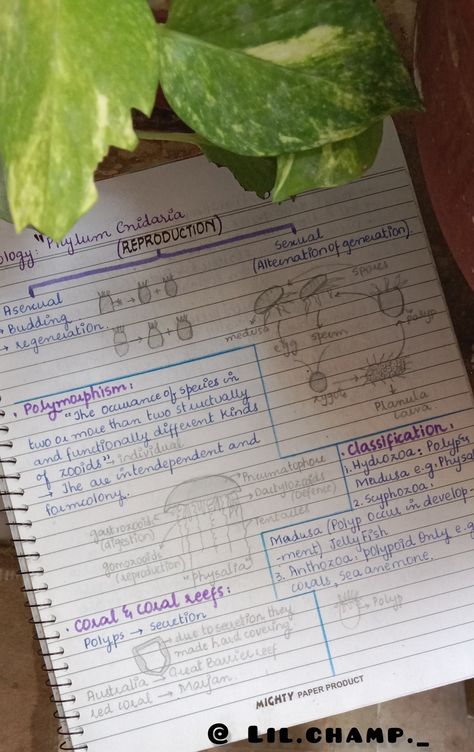 ology: "Phylum Cnidaria
(REPRODUCTION)
Asexual
→ Budding
→ regeneration.
Sexual
(Alternation of generation).
spores
medusa
egg
sperm
polyp
zygote
Planula
larva
• Polymorphism:
"The occurance of species in
two or more than two structually
and functionally different kinds
of zooids", individual
→ The are intendependent and
form colony.
Pneumatophore
Dactylozoids
(Defence)
Tentacles
gastrozooids
(digestion)
gomozooids
(reproduction)
"Physalia"
• Classification:
1. Hydrozoa: Polyps
Medusa e.g. Physal
2. Scyphozoa:
Madusa (Polyp occur in develop-
ment) Jelly Fish
3. Anthozoa: polypoid Only e.g
corals, sea anemone.
→ Polyp
• Coral & coral reefs:
Polyps → secretion
→ due to secretion they
made hard covering
Australia → Great Barrier reef
red coral → Marjan.
MIGHTY PAPER PRODUCT
@ LIL.CHAMP._